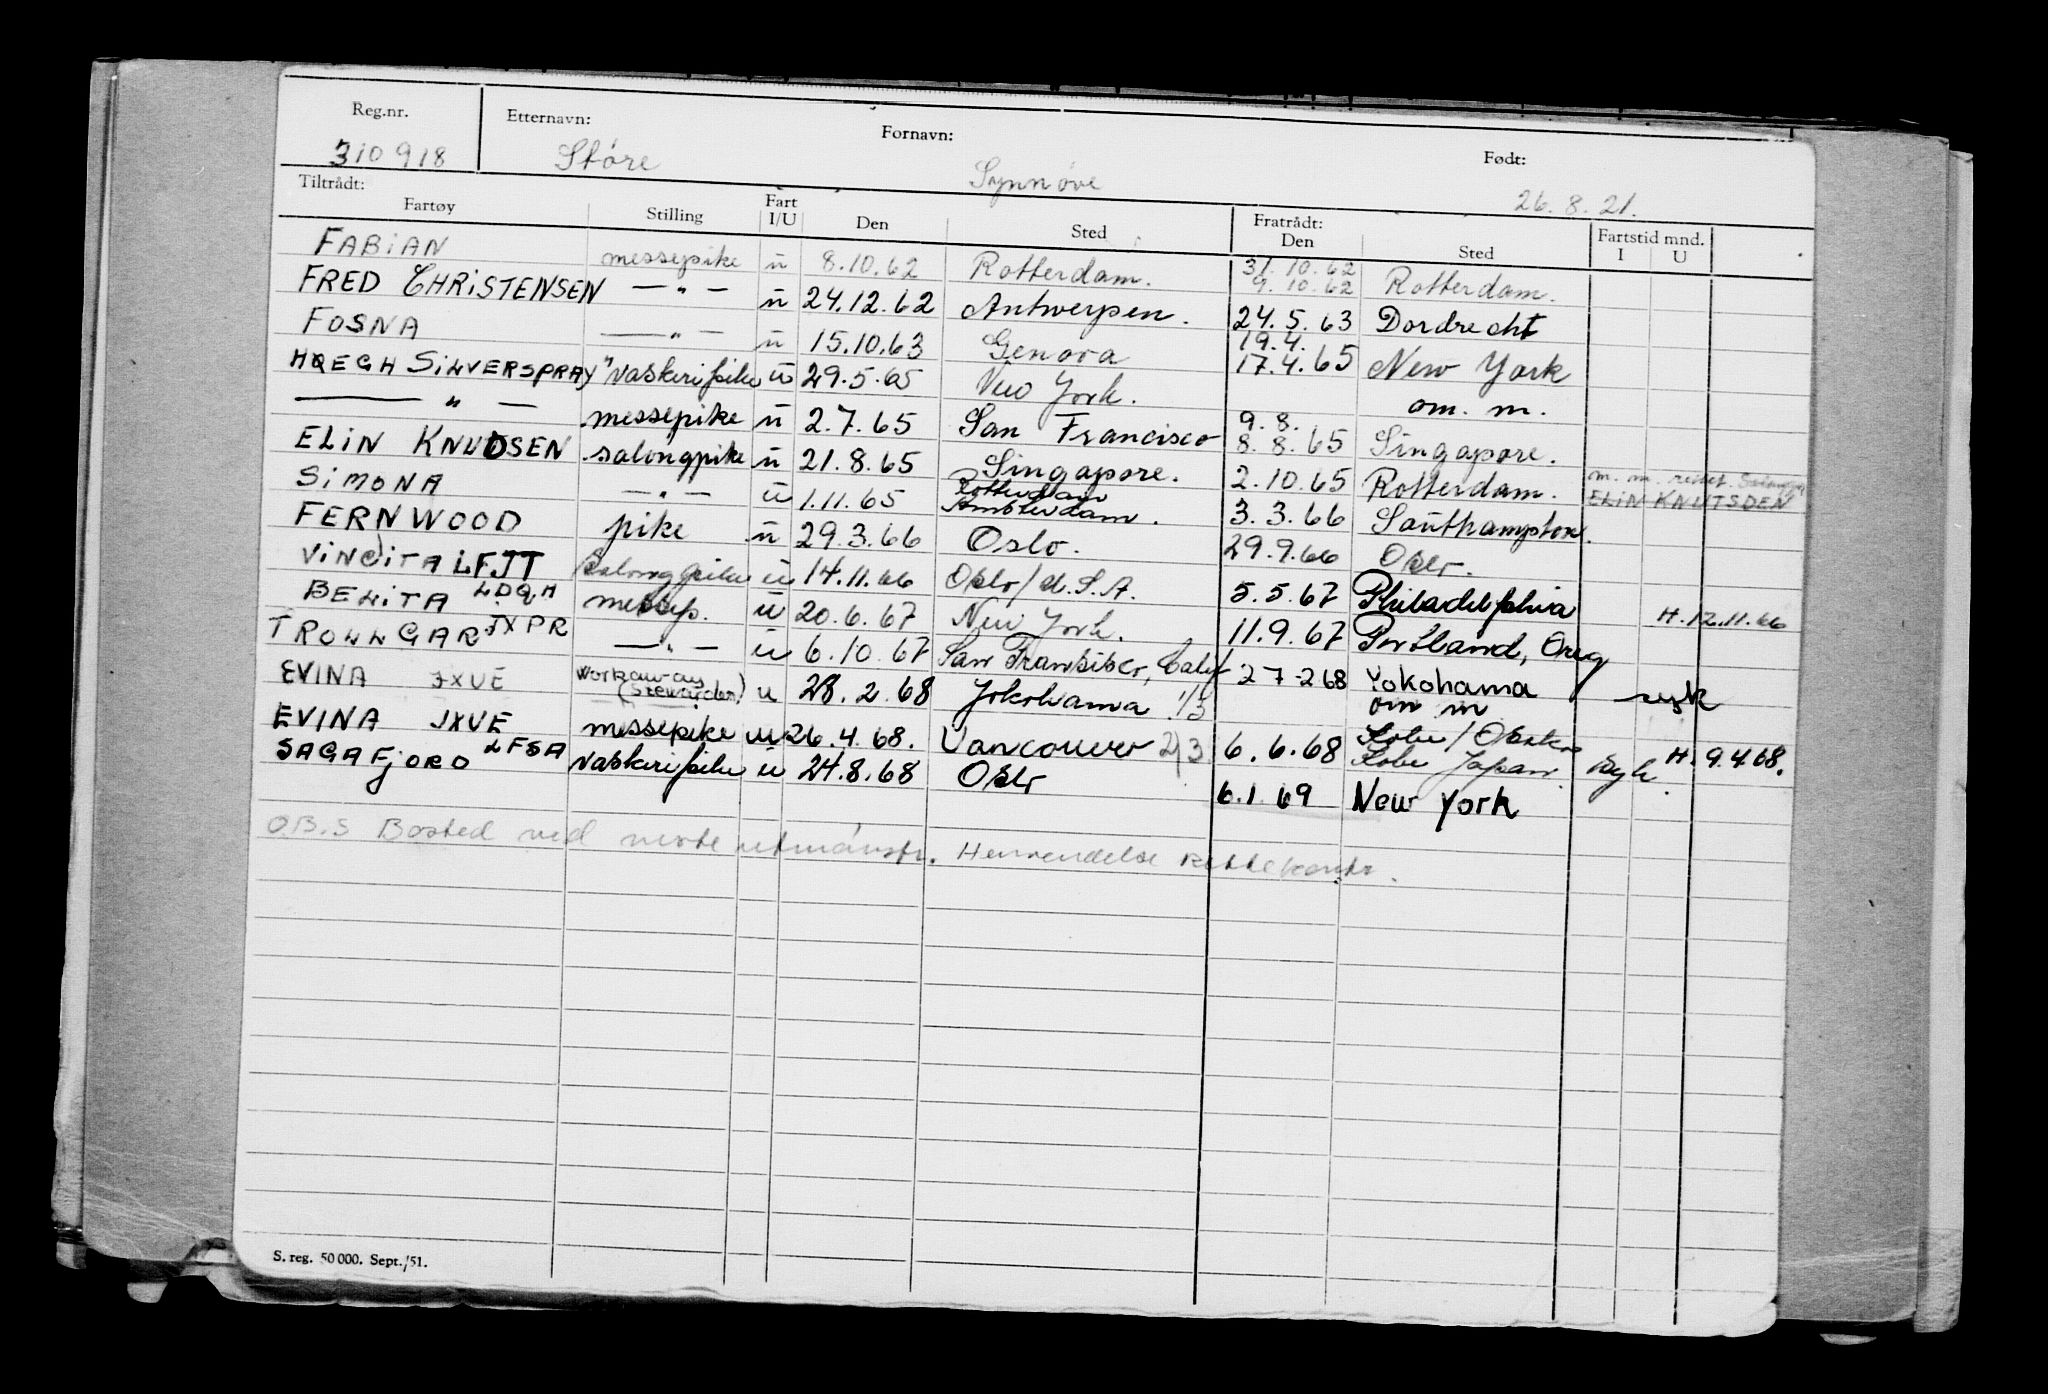 Reg.nr. Etternavn: Fornavn: Født:
310918 Støre Synnøve 26.8.21.
Tiltrådt: Fratrådt:
Fartøy Stilling Fart I/U Den Sted Den Sted Fartstid mnd. I U
FABIAN messepike u 8.10.62 Rotterdam. 31.10.62 9.10.62 Rotterdam.
FRED CHRISTENSEN — " — u 24.12.62 Antwerpen. 24.5.63 Dordrecht
FOSNA — " — u 15.10.63 Genova 19.4. 17.4.65 New York
HØEGH SILVERSPRAY " vaskeripike u 29.5.65 New York. om. m.
— " — messepike u 2.7.65 San Francisco 9.8. 8.8.65 Singapore.
ELIN KNUDSEN salongpike u 21.8.65 Singapore. 2.10.65 Rotterdam. ELIN KNUTSDEN
SIMONA — " — u 1.11.65 Rotterdam Amsterdam. 3.3.66 Southampton.
FERNWOOD pike u 29.3.66 Oslo. 29.9.66 Oslo.
VINDITA LFJT Salongpike u 14.11.66 Oslo/U.S.A. 5.5.67 Philadelphia H. 12.11.66
BELITA LDQH messep. u 20.6.67 New York. 11.9.67 Portland, Oreg
TROLLGAR JXPR — " — u 6.10.67 San Fransisco, Calif 27-2 68 Yokohama syk
EVINA JXUE Workaway (Stewarden) u 28.2.68 Yokohama 1/3 om m
EVINA JXUE messepike u 26.4.68. Vancouver 2/3 6.6.68 Kobe/Osaka Kobe Japan Syk. H. 9.4.68.
SAGAFJORD LFSA vaskeripike u 24.8.68 Oslo 6.1.69 New York
O.B.S Bosted ved neste utmønstr. Henvendelse
S. reg. 50 000. Sept./51.